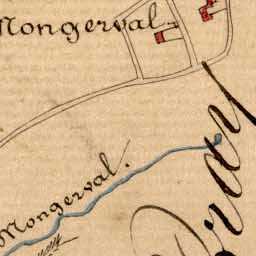 Mongerval
Mongerval.
Pray